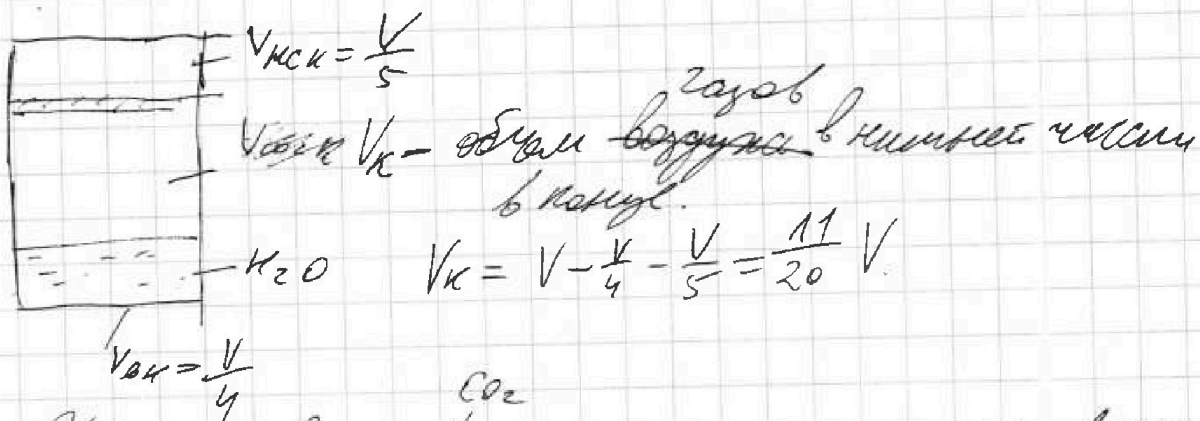 Vнск = V/5
газов
Vк – объем воздуха в нижней части
в конце.
H₂O Vк = V - V/4 - V/5 = 11/20 V.
Vвк = V/4
CO₂